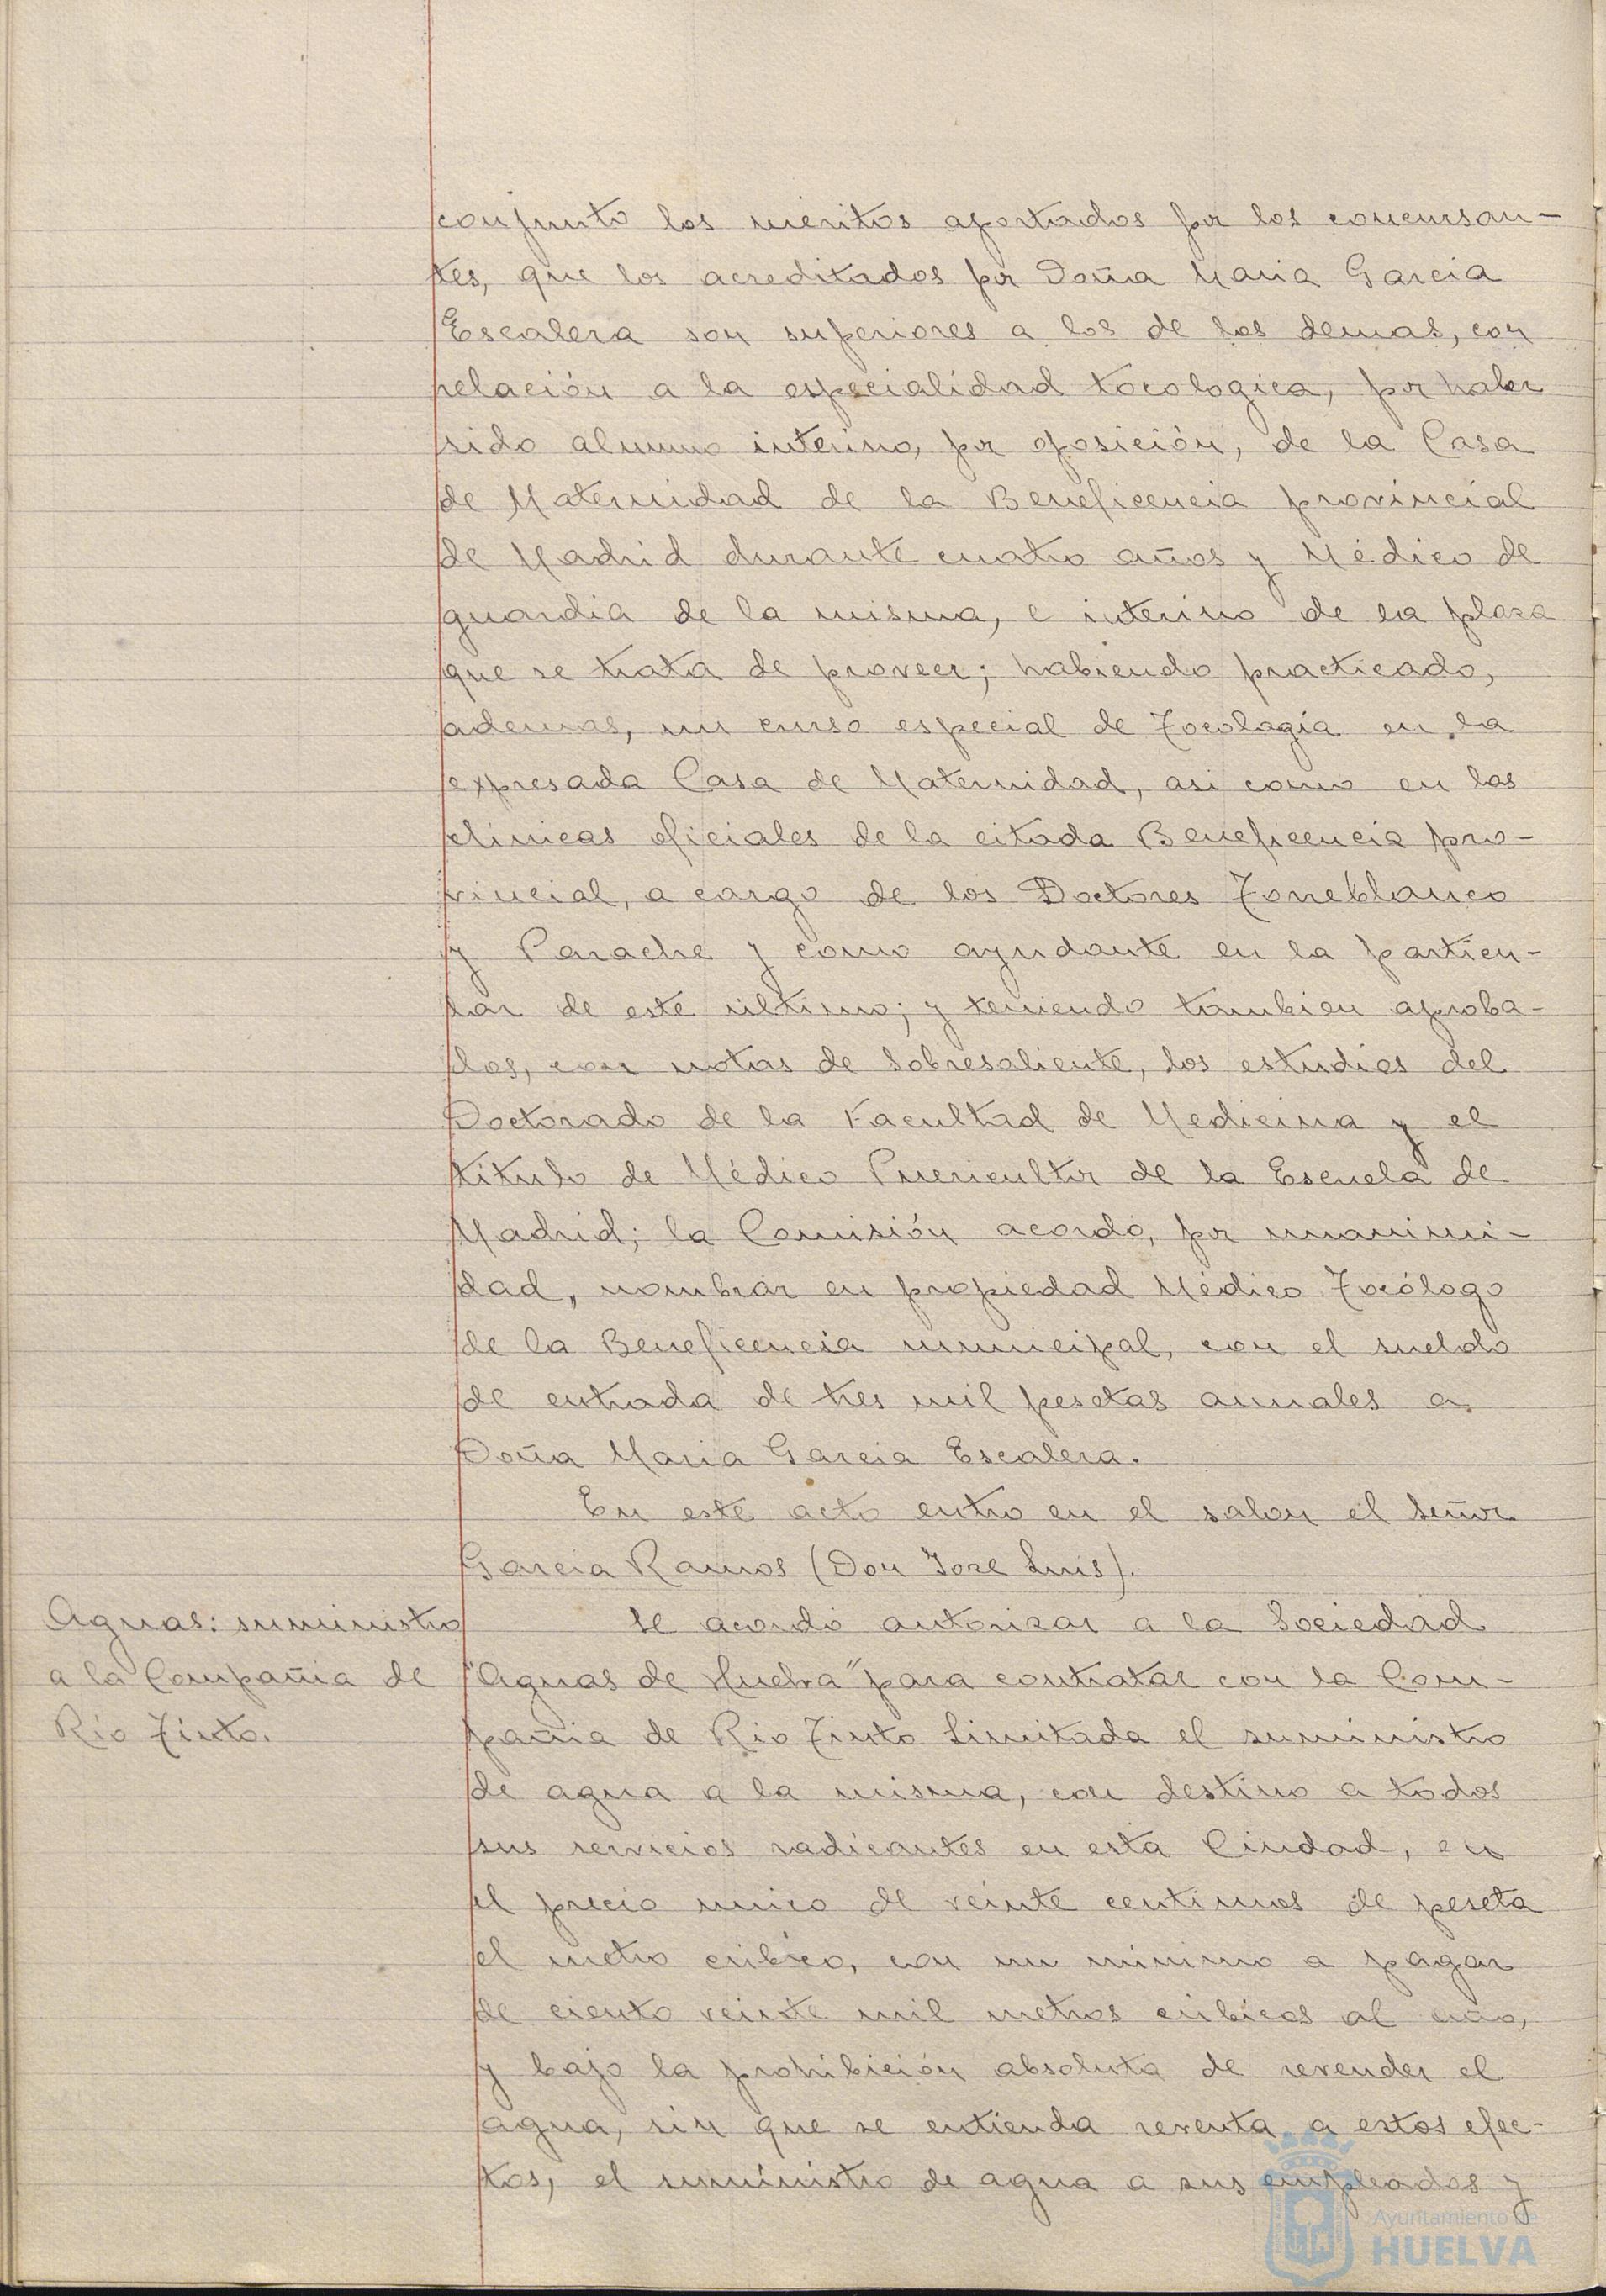 conjunto los méritos aportados por los concursan-
tes, que los acreditados por Doña Maria Garcia
Escalera son superiores a los de los demas, con
relación a la especialidad tocologica, por haber
sido alumno interino, por oposición, de la Casa
de Maternidad de la Beneficencia provincial
de Madrid durante cuatro años y Médico de
guardia de la misma, e interino de la plaza
que se trata de proveer; habiendo practicado,
ademas, un curso especial de Tocología en la
expresada Casa de Maternidad, asi como en las
clinicas oficiales de la citada Beneficencia pro-
vincial, a cargo de los Doctores Torreblanco
y Parache y como ayudante en la particu-
lar de este ultimo; y teniendo tambien aproba-
dos, con notas de Sobresaliente, los estudios del
Doctorado de la Facultad de Medicina y el
titulo de Médico Puericultor de la Escuela de
Madrid; la Comisión acordó, por unanimi-
dad, nombrar en propiedad Médico Tocólogo
de la Beneficencia municipal, con el sueldo
de entrada de tres mil pesetas anuales a
Doña Maria Garcia Escalera.
En este acto entro en el salon el Señor
Garcia Ramos (Don Jose Luis).
Aguas: suministro
a la Compañia de
Rio Tinto.
Se acordó autorizar a la Sociedad
"Aguas de Huelva" para contratar con la Com-
pañia de Rio Tinto Limitada el suministro
de agua a la misma, con destino a todos
sus servicios radicantes en esta Ciudad, en
el precio unico de veinte centimos de peseta
el metro cúbico, con un minimo a pagar
de ciento veinte mil metros cúbicos al año,
y bajo la prohibición absoluta de revender el
agua, sin que se entienda reventa, a estos efec-
tos, el suministro de agua a sus empleados y
Ayuntamiento de
HUELVA